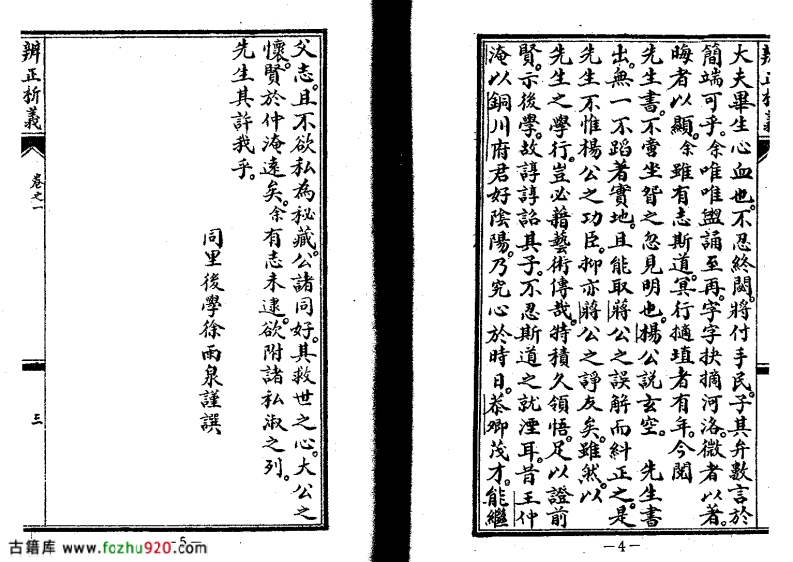 辨正析義
大夫畢生心血也。不忍終閟。將付手民。子其弁數言於
簡端可乎。余唯唯。盥誦至再。字字抉摘河洛。微者以著。
晦者以顯。余雖有志斯道。冥行擿埴者有年。今閱
先生書。不啻坐眢之忽見明也。楊公說玄空。　先生書
出。無一不蹈著實地。且能取蔣公之誤解而糾正之。是
先生不惟楊公之功臣。抑亦蔣公之諍友矣。雖然。以
先生之學行。豈必藉藝術傳哉。特積久領悟。足以證前
賢。示後學。故諄諄詔其子。不忍斯道之就湮耳。昔王仲
淹以銅川府君好陰陽。乃究心於時日。恭卿茂才。能繼
—4—
父志。且不欲私為秘藏。公諸同好。其救世之心。大公之
懷。賢於仲淹遠矣。余有志未逮。欲附諸私淑之列。
先生其許我乎。
同里後學徐雨泉謹譔
辨正析義
卷之一
三
—5—
古籍库 www.fozhu920.com